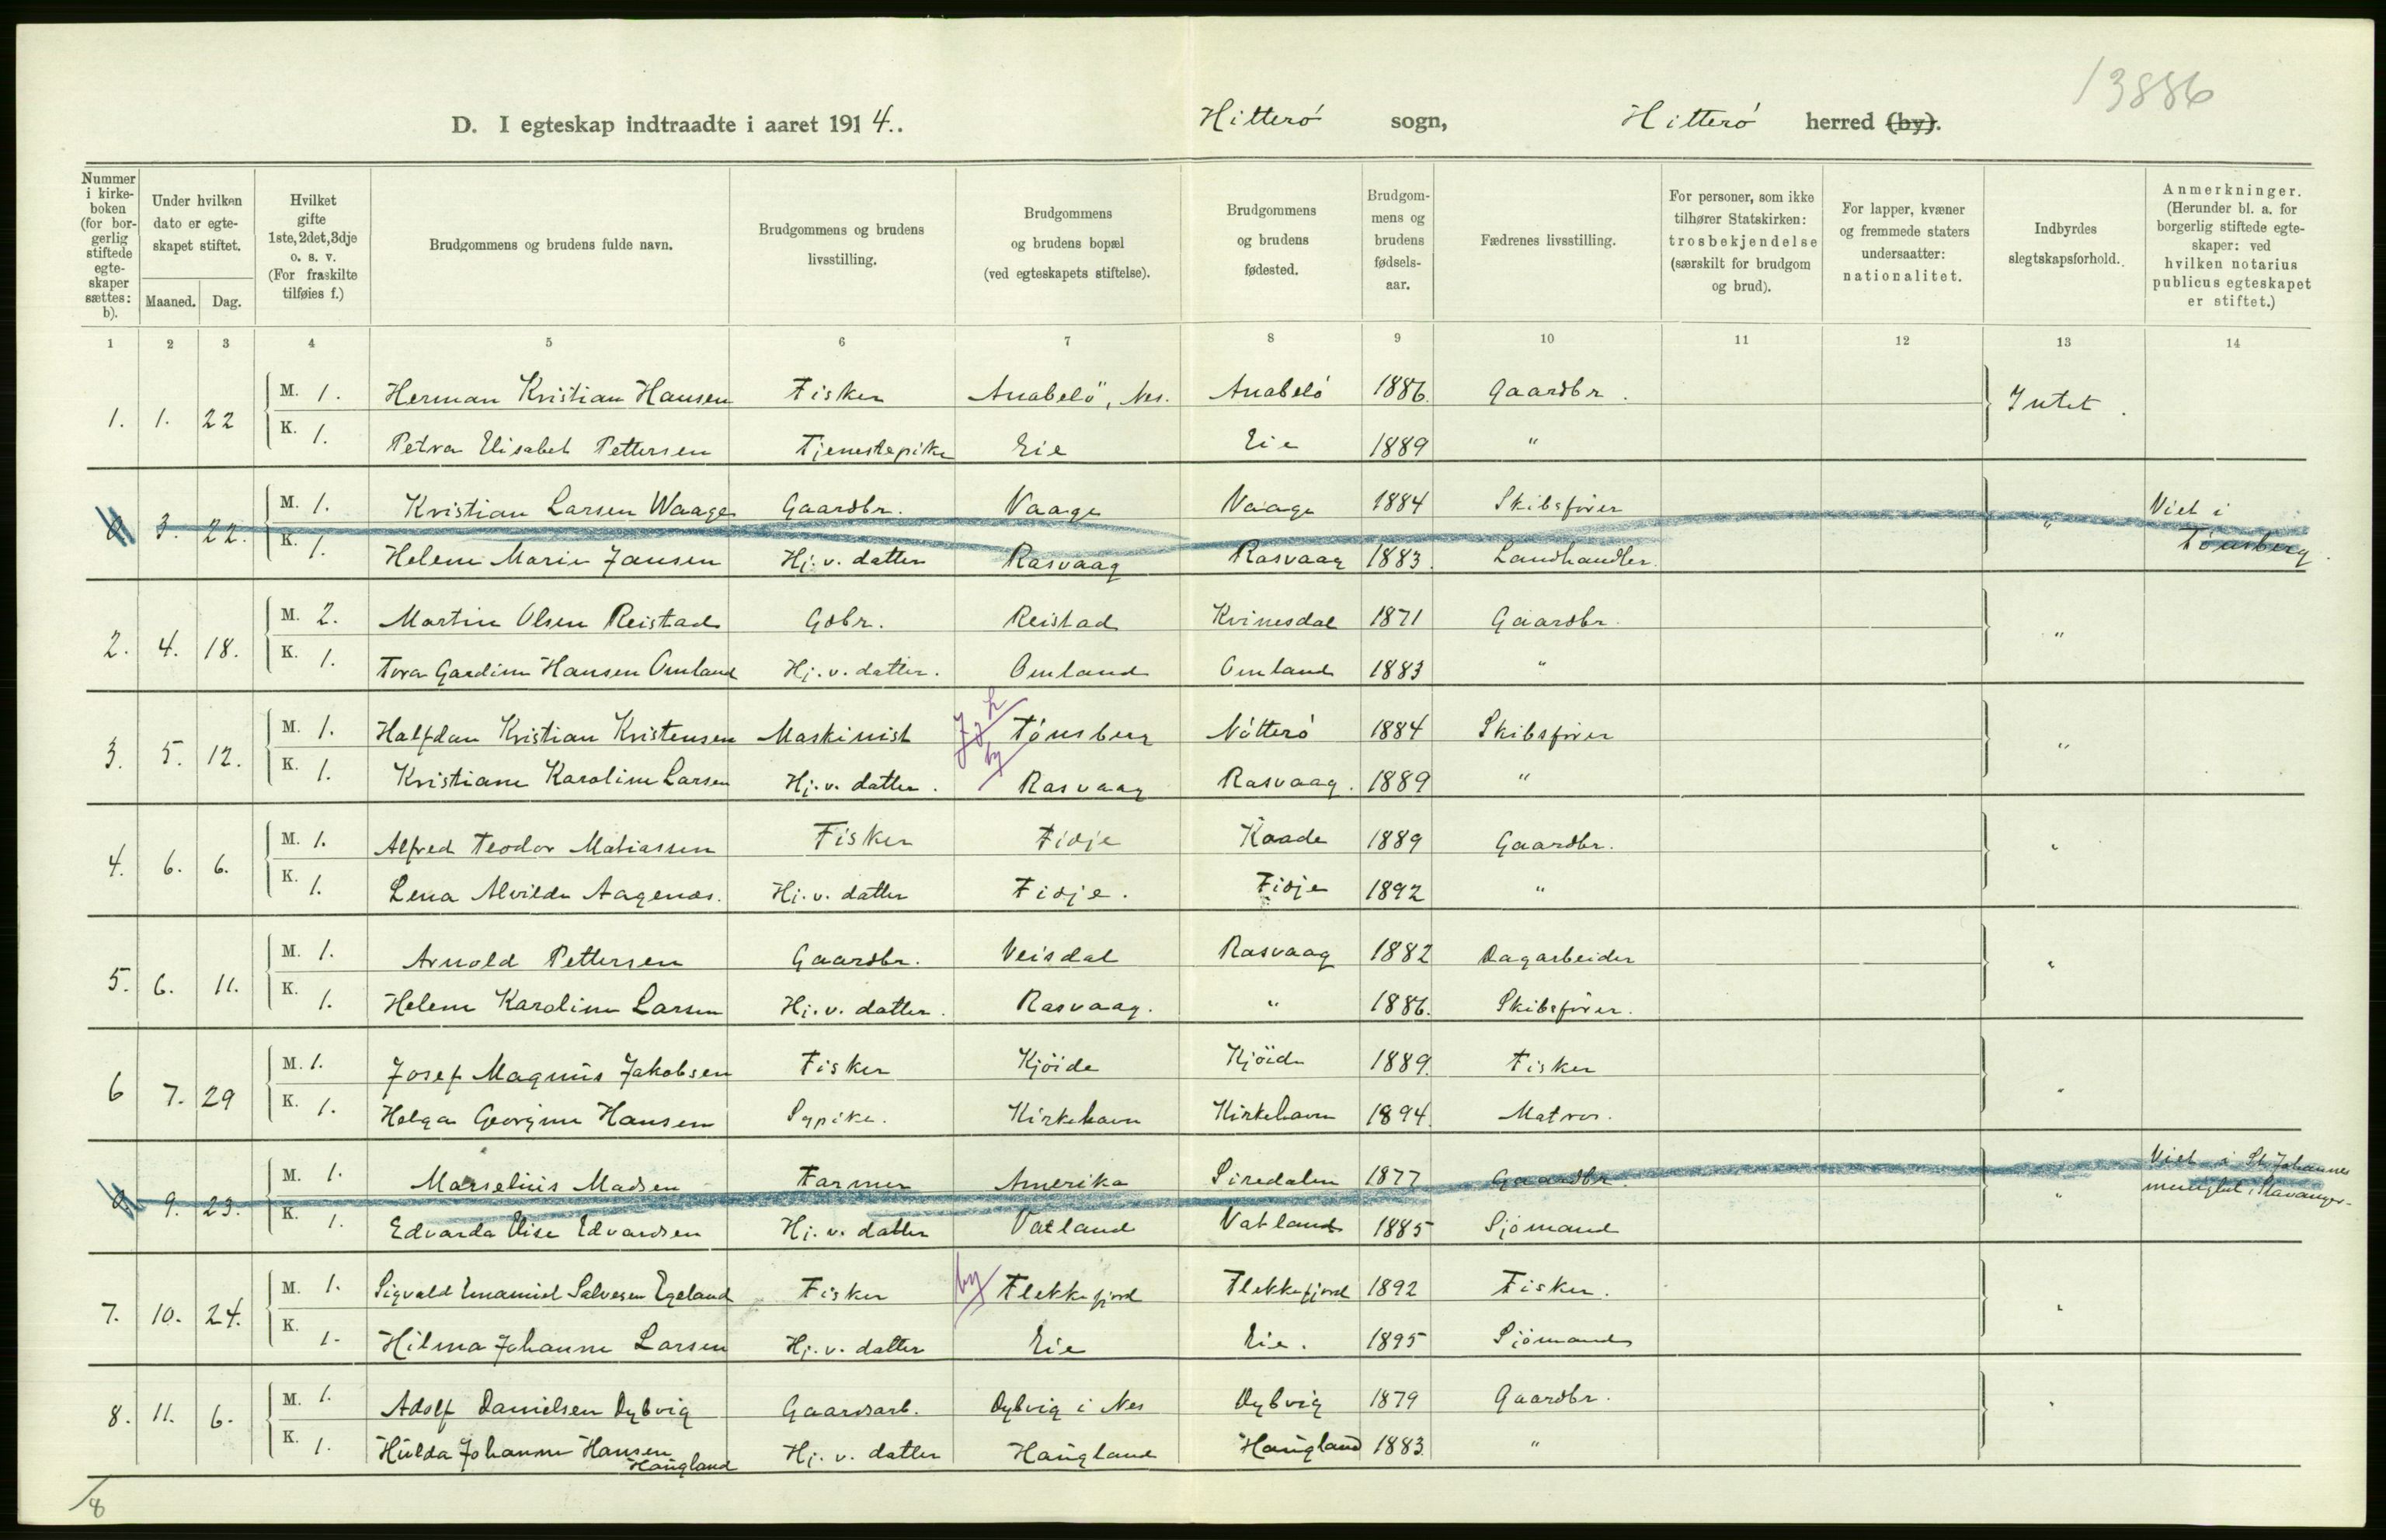 13886
D. I egteskap indtraadte i aaret 1914.. Hitterö sogn, Hitterö herred (by).
Nummer i kirkeboken (for borgerlig stiftede egteskaper sættes: b).
Under hvilken dato er egteskapet stiftet.
Maaned. Dag.
Hvilket gifte 1ste, 2det, 3dje o. s. v. (For fraskilte tilføies f.)
Brudgommens og brudens fulde navn.
Brudgommens og brudens livsstilling.
Brudgommens og brudens bopæl (ved egteskapets stiftelse).
Brudgommens og brudens fødested.
Brudgommens og brudens fødselsaar.
Fædrenes livsstilling.
For personer, som ikke tilhører Statskirken: trosbekjendelse (særskilt for brudgom og brud).
For lapper, kvæner og fremmede staters undersaatter: nationalitet.
Indbyrdes slegtskapsforhold.
Anmerkninger. (Herunder bl. a. for borgerlig stiftede egteskaper: ved hvilken notarius publicus egteskapet er stiftet.)
1 2 3 4 5 6 7 8 9 10 11 12 13 14
1. 1. 22 M. 1. Herman Kristian Hansen Fisker Anabelö, Nes. Anabelö 1886. Gaardbr. Intet.
K. 1. Petra Elisabet Pettersen Tjenestepike Eie Eie 1889 "
3. 22. M. 1. Kristian Larsen Waage Gaardbr. Vaage Vaage 1884 Skibsfører " Viet i
K. 1. Helene Marie Jansen Hj. v. datter Rasvaag Rasvaag 1883. Landhandler. Tönsberg.
2. 4. 18. M. 2. Martin Olsen Reistad Gdbr. Reistad Kvinesdal 1871 Gaardbr. "
K. 1. Tora Gardine Hansen Omland Hj. v. datter. Omland Omland 1883 "
3. 5. 12. M. 1. Halfdan Kristian Kristensen Maskinist by Tönsberg Nötterö 1884 Skibsfører "
K. 1. Kristiane Karoline Larsen Hj. v. datter. Rasvaag Rasvaag. 1889 "
4. 6. 6. M. 1. Alfred Teodor Matiassen Fisker Fidje Kaade 1889 Gaardbr. "
K. 1. Lena Alvilde Aagenes. Hj. v. datter Fidje. Fidje 1892 "
5. 6. 11. M. 1. Arnold Pettersen Gaardbr. Veisdal Rasvaag 1882 Dagarbeider "
K. 1. Helene Karoline Larsen Hj. v. datter. Rasvaag. " 1886. Skibsfører.
6 7. 29 M. 1. Josef Magnus Jakobsen Fisker Kjöide Kjöide 1889. Fisker "
K. 1. Helga Georgine Hansen Sypike. Kirkehavn Kirkehavn 1894. Matros.
9. 23. M. 1. Marselius Madsen Farmer Amerika Siredalen 1877 Gaardbr. " Viet i St. Johannes
K. 1. Edvarda Elise Edvardsen Hj. v. datter Vatland Vatland 1885 Sjömand menighet, Stavanger.
7. 10. 24. M. 1. Sigvald Emanuel Salvesen Egeland Fisker by Flekkefjord Flekkefjord 1892 Fisker. "
K. 1. Hilma Johanne Larsen Hj. v. datter Eie Eie. 1895 Sjömand
8. 11. 6. M. 1. Adolf Danielsen Dybvig Gaardsarb. Dybvig i Nes Dybvig 1879 Gaardbr. "
K. 1. Hulda Johanne Hansen Haugland Hj. v. datter Haugland Haugland 1883. "
/8